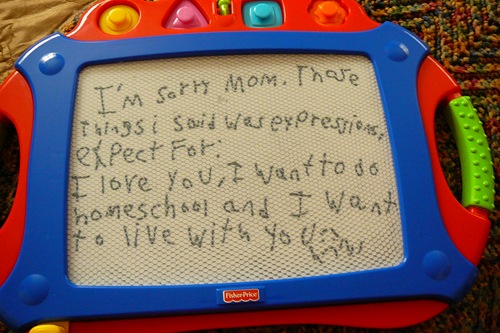 I'm sorry Mom. Those
things i said was expressions,
expect for:
I love you, I want to do
homeschool and I want
to live with you
Fisher-Price